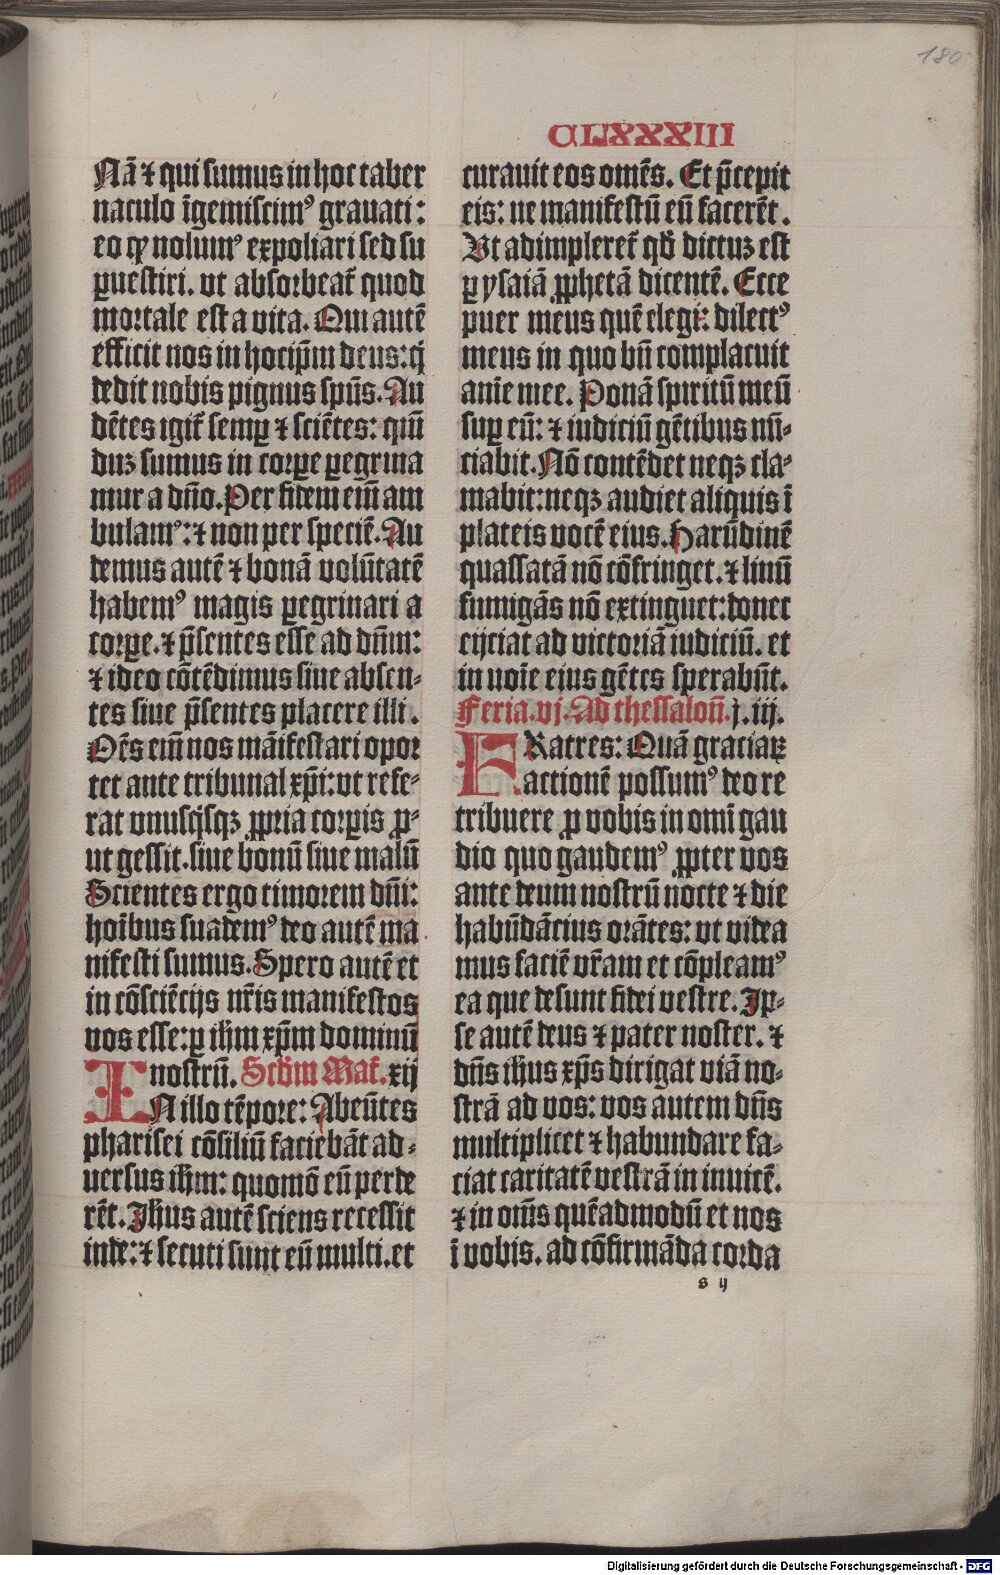 180
CLXXXIII
Nā ⁊ qui sumus in hoc taber
naculo īgemiscimꝰ grauati:
eo ꝙ nolumꝰ expoliari sed su
ꝑuestiri. vt absorbeat᷑ quod
mortale est a vita. Qui autē
efficit nos in hocip̄m deus: q̇
dedit nobis pignus spūs. Au
dētes igit᷑ semꝑ ⁊ sciētes: qm̄
duꝫ sumus in corpe ꝑegrina
mur a dn̄o. Per fidem eim̄ am
bulamꝰ: ⁊ non per speciē. Au
demus autē ⁊ bonā volūtatē
habemꝰ magis ꝑegrinari a
corpe. ⁊ p̄sentes esse ad dn̄m:
⁊ ideo cōtēdimus siue absen-
tes siue p̄sentes placere illi.
Oēs eim̄ nos māifestari opor
tet ante tribunal xp̄i: vt refe-
rat vnusq̇sqꝫ ꝓpria corꝑis ꝓ-
ut gessit. siue bonū siue malū
Scientes ergo timorem dn̄i:
hoībus suademꝰ deo autē ma
nifesti sumus. Spero autē et
in cōsciēcijs nr̄is manifestos
vos esse: ꝑ ih̄m xp̄m dominū
nostrū. Scdm̄ Mat᷑. xij
IN illo tēpore: Abeūtes
pharisei cōsiliū faciebāt ad-
uersus ih̄m: quomō eū perde
rēt. Ih̄us autē sciens recessit
inde: ⁊ secuti sunt eū multi. et
curauit eos omēs. Et p̄cepit
eis: ne manifestū eū facerēt.
Vt adimpleret᷑ qd̄ dictuꝫ est
ꝑ ysaiā ꝓphetā dicentē. Ecce
puer meus quē elegi: dilectꝰ
meus in quo bn̄ complacuit
anie mee. Ponā spiritū meū
suꝑ eū: ⁊ iudiciū gētibus nū-
ciabit. Nō contēdet neqꝫ cla-
mabit: neqꝫ audiet aliquis ī
plateis vocē eius. Harūdinē
quassatā nō cōfringet. ⁊ linū
fumigās nō extinguet: donec
eijciat ad victoriā iudiciū. et
in noīe eius gētes sperabūt.
Feria. vj. Ad thessalon̄. j. iij.
FRatres: Quā graciaꝝ
actionē possumꝰ deo re
tribuere ꝓ vobis in omī gau
dio quo gaudemꝰ ꝓpter vos
ante deum nostrū nocte ⁊ die
habūdācius orātes: vt videa
mus faciē vr̄am et cōpleamꝰ
ea que desunt fidei vestre. Ip-
se autē deus ⁊ pater noster. ⁊
dn̄s ih̄us xp̄s dirigat viā no-
strā ad vos: vos autem dn̄s
multiplicet ⁊ habundare fa-
ciat caritatē vestrā in inuicē.
⁊ in om̄s quēadmodū et nos
ī vobis. ad cōfirmāda corda
s ij
Digitalisierung gefördert durch die Deutsche Forschungsgemeinschaft - DFG